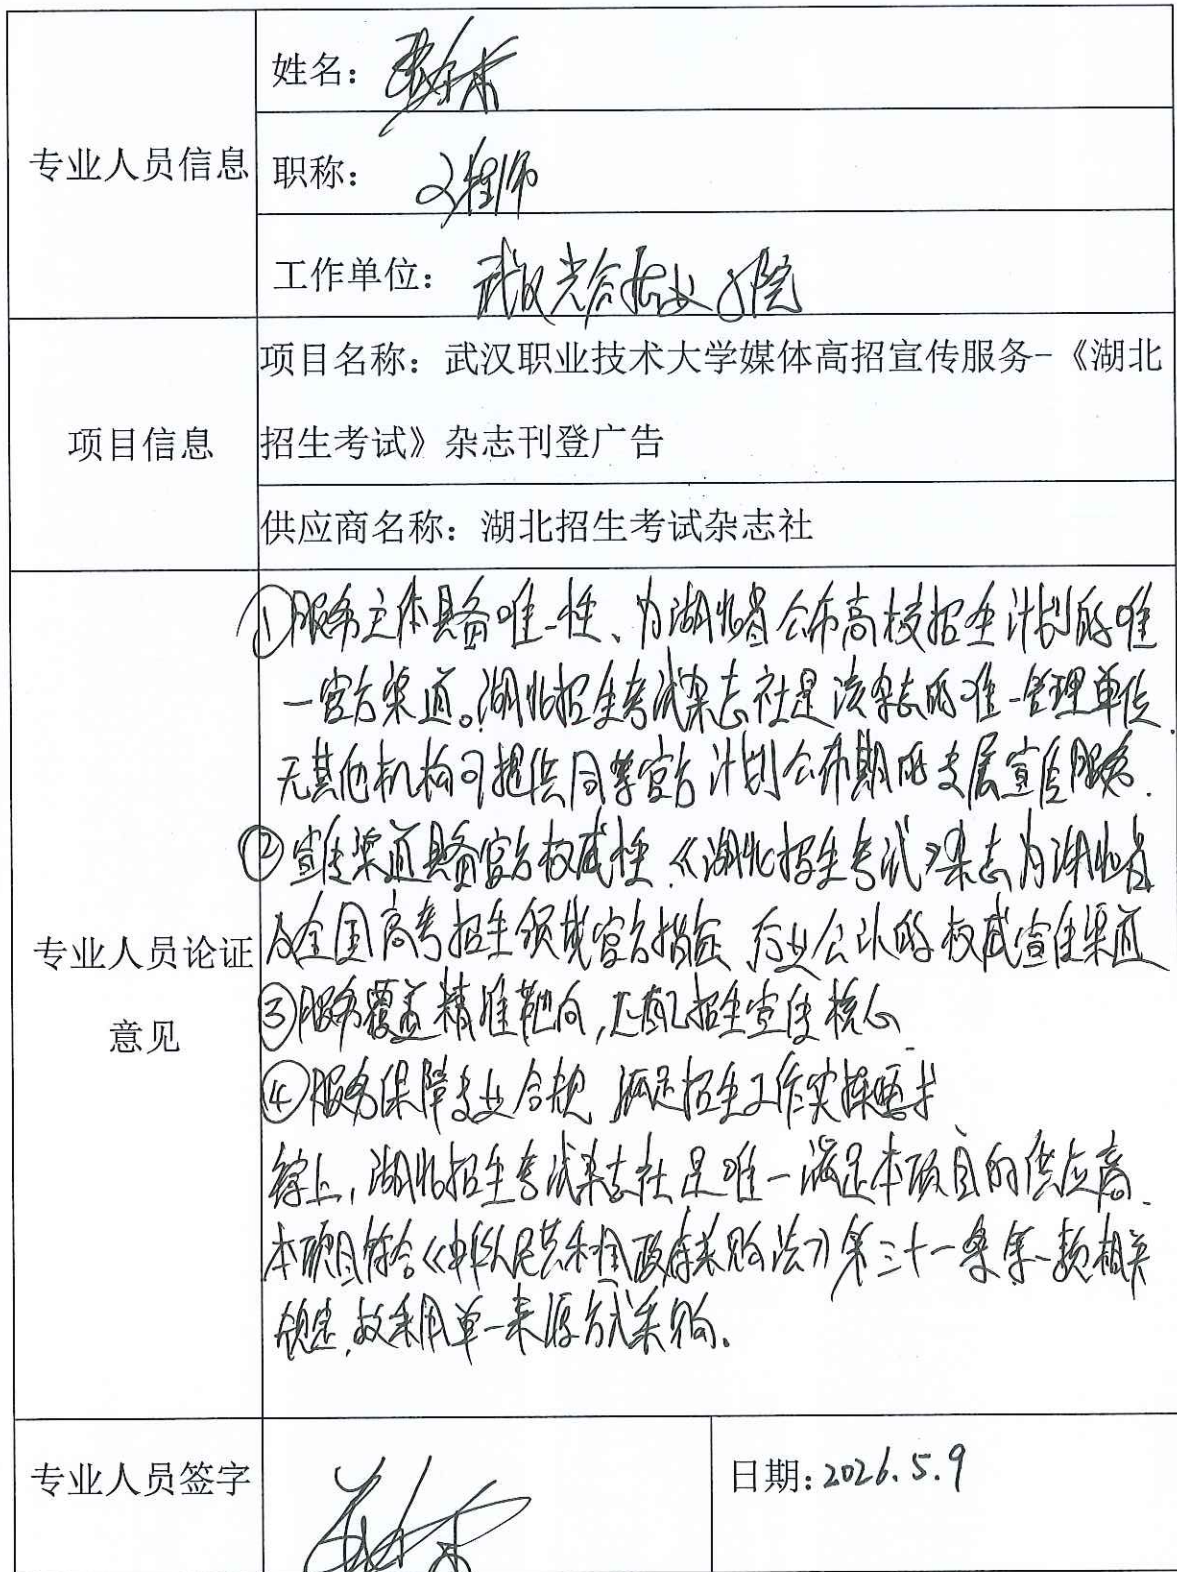 姓名：
专业人员信息
职称： 工程师
工作单位： 武汉光谷职业学院
项目名称：武汉职业技术大学媒体高招宣传服务-《湖北
项目信息
招生考试》杂志刊登广告
供应商名称：湖北招生考试杂志社
①服务主体具备唯一性、为湖北省公布高校招生计划的唯
一官方渠道。湖北招生考试杂志社是该杂志的唯一管理单位.
无其他机构可提供同等官方计划公布期的专属宣传服务.
②宣传渠道具备官方权威性.《湖北招生考试》杂志为湖北省
及全国高考招生领域官方指定 行业公认的权威宣传渠道
专业人员论证
③服务覆盖精准靶向,匹配招生宣传核心
意见
④服务保障专业合规 满足招生工作实操要求
综上,湖北招生考试杂志社是唯一满足本项目的供应商.
本项目符合《中华人民共和国政府采购法》第三十一条第一款相关
规定,故采用单一来源方式采购。
专业人员签字
日期:2026.5.9